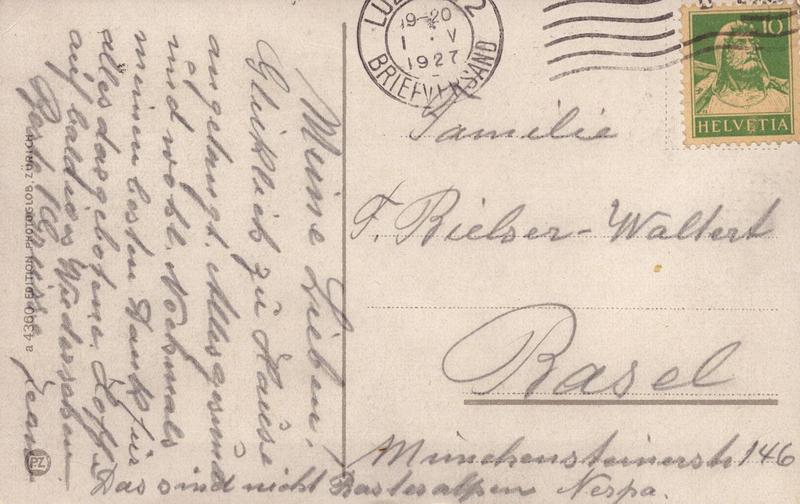 LUZ 2
19-20
1 V
1927
BRIEFVERSAND
10
HELVETIA
Familie
F. Bielser-Waltert
Basel
Münchensteinerstr 146
Meine Lieben,
Glücklich zu Hause
angelangt. Alles gesund
und wohl. Nochmals
meinen besten Dank für
alles dargebotene. Hoffe
auf baldiges Wiedersehen
Jean
Das sind nicht Basleralpen
a 4360 EDITION PHOTOGLOB, ZÜRICH
PZ